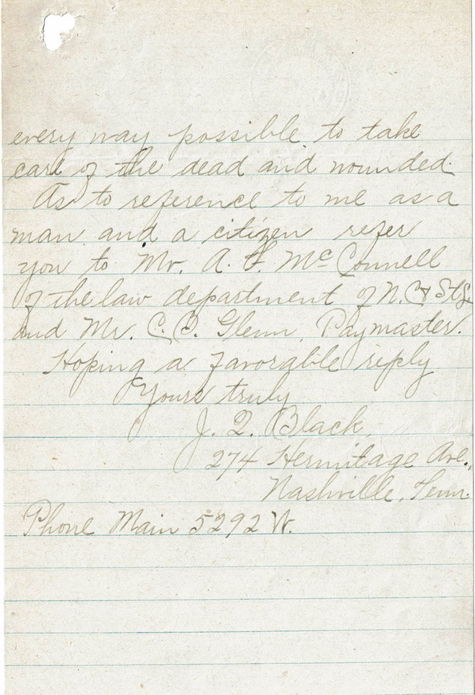 every way possible to take
care of the dead and wounded.
As to reference to me as a
man and a citizen refer
you to Mr. A. S. McConnell
of the law department of N. C & StL
and Mr. C. C. Glenn, Paymaster.
Hoping a favorable reply
Yours truly
J. Q. Black
274 Hermitage Ave.,
Nashville, Tenn
Phone Main 5292 W.